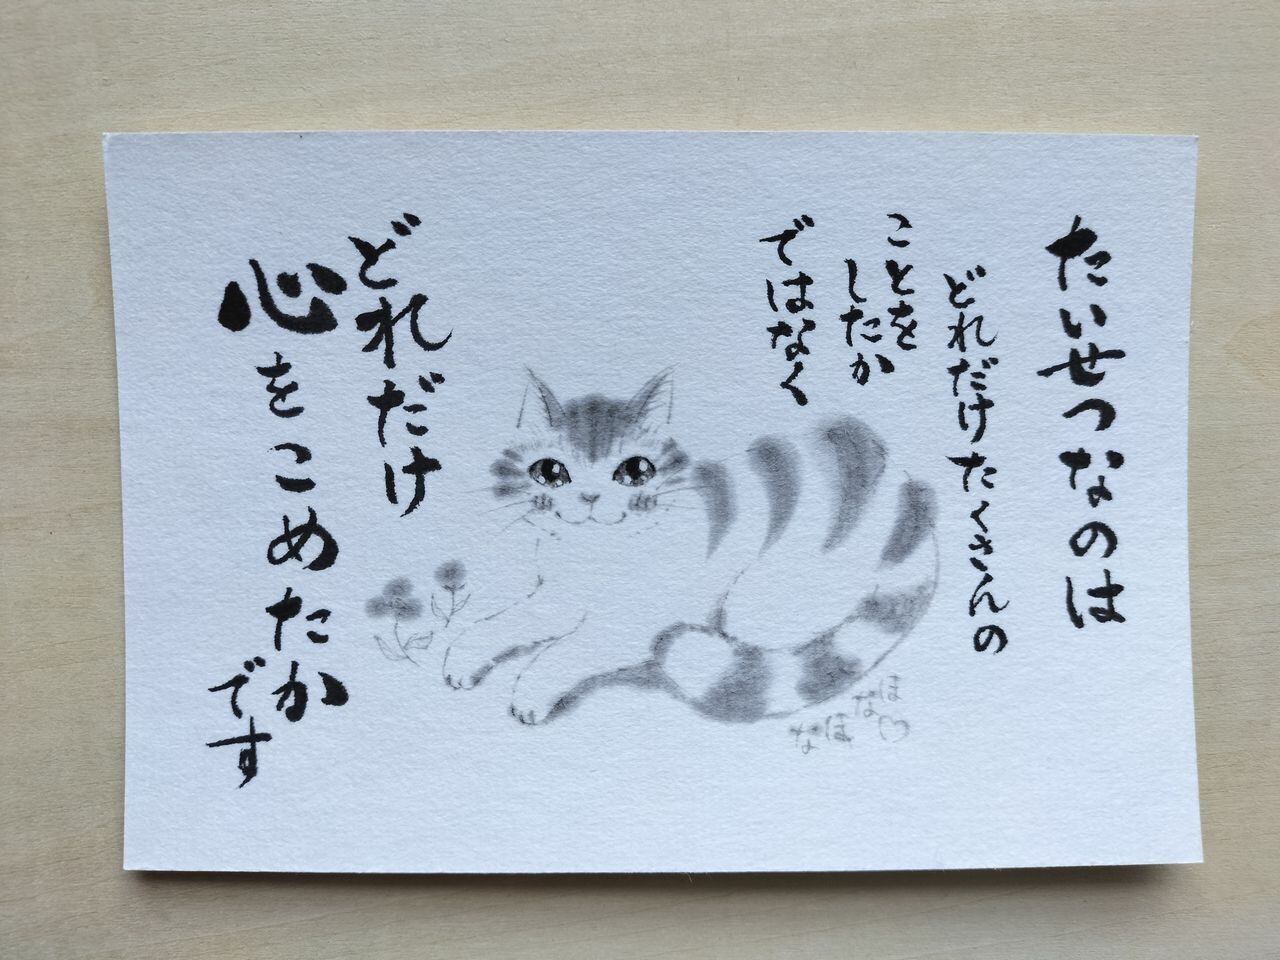 たいせつなのは
どれだけたくさんの
ことを
したか
ではなく
どれだけ
心をこめたか
です